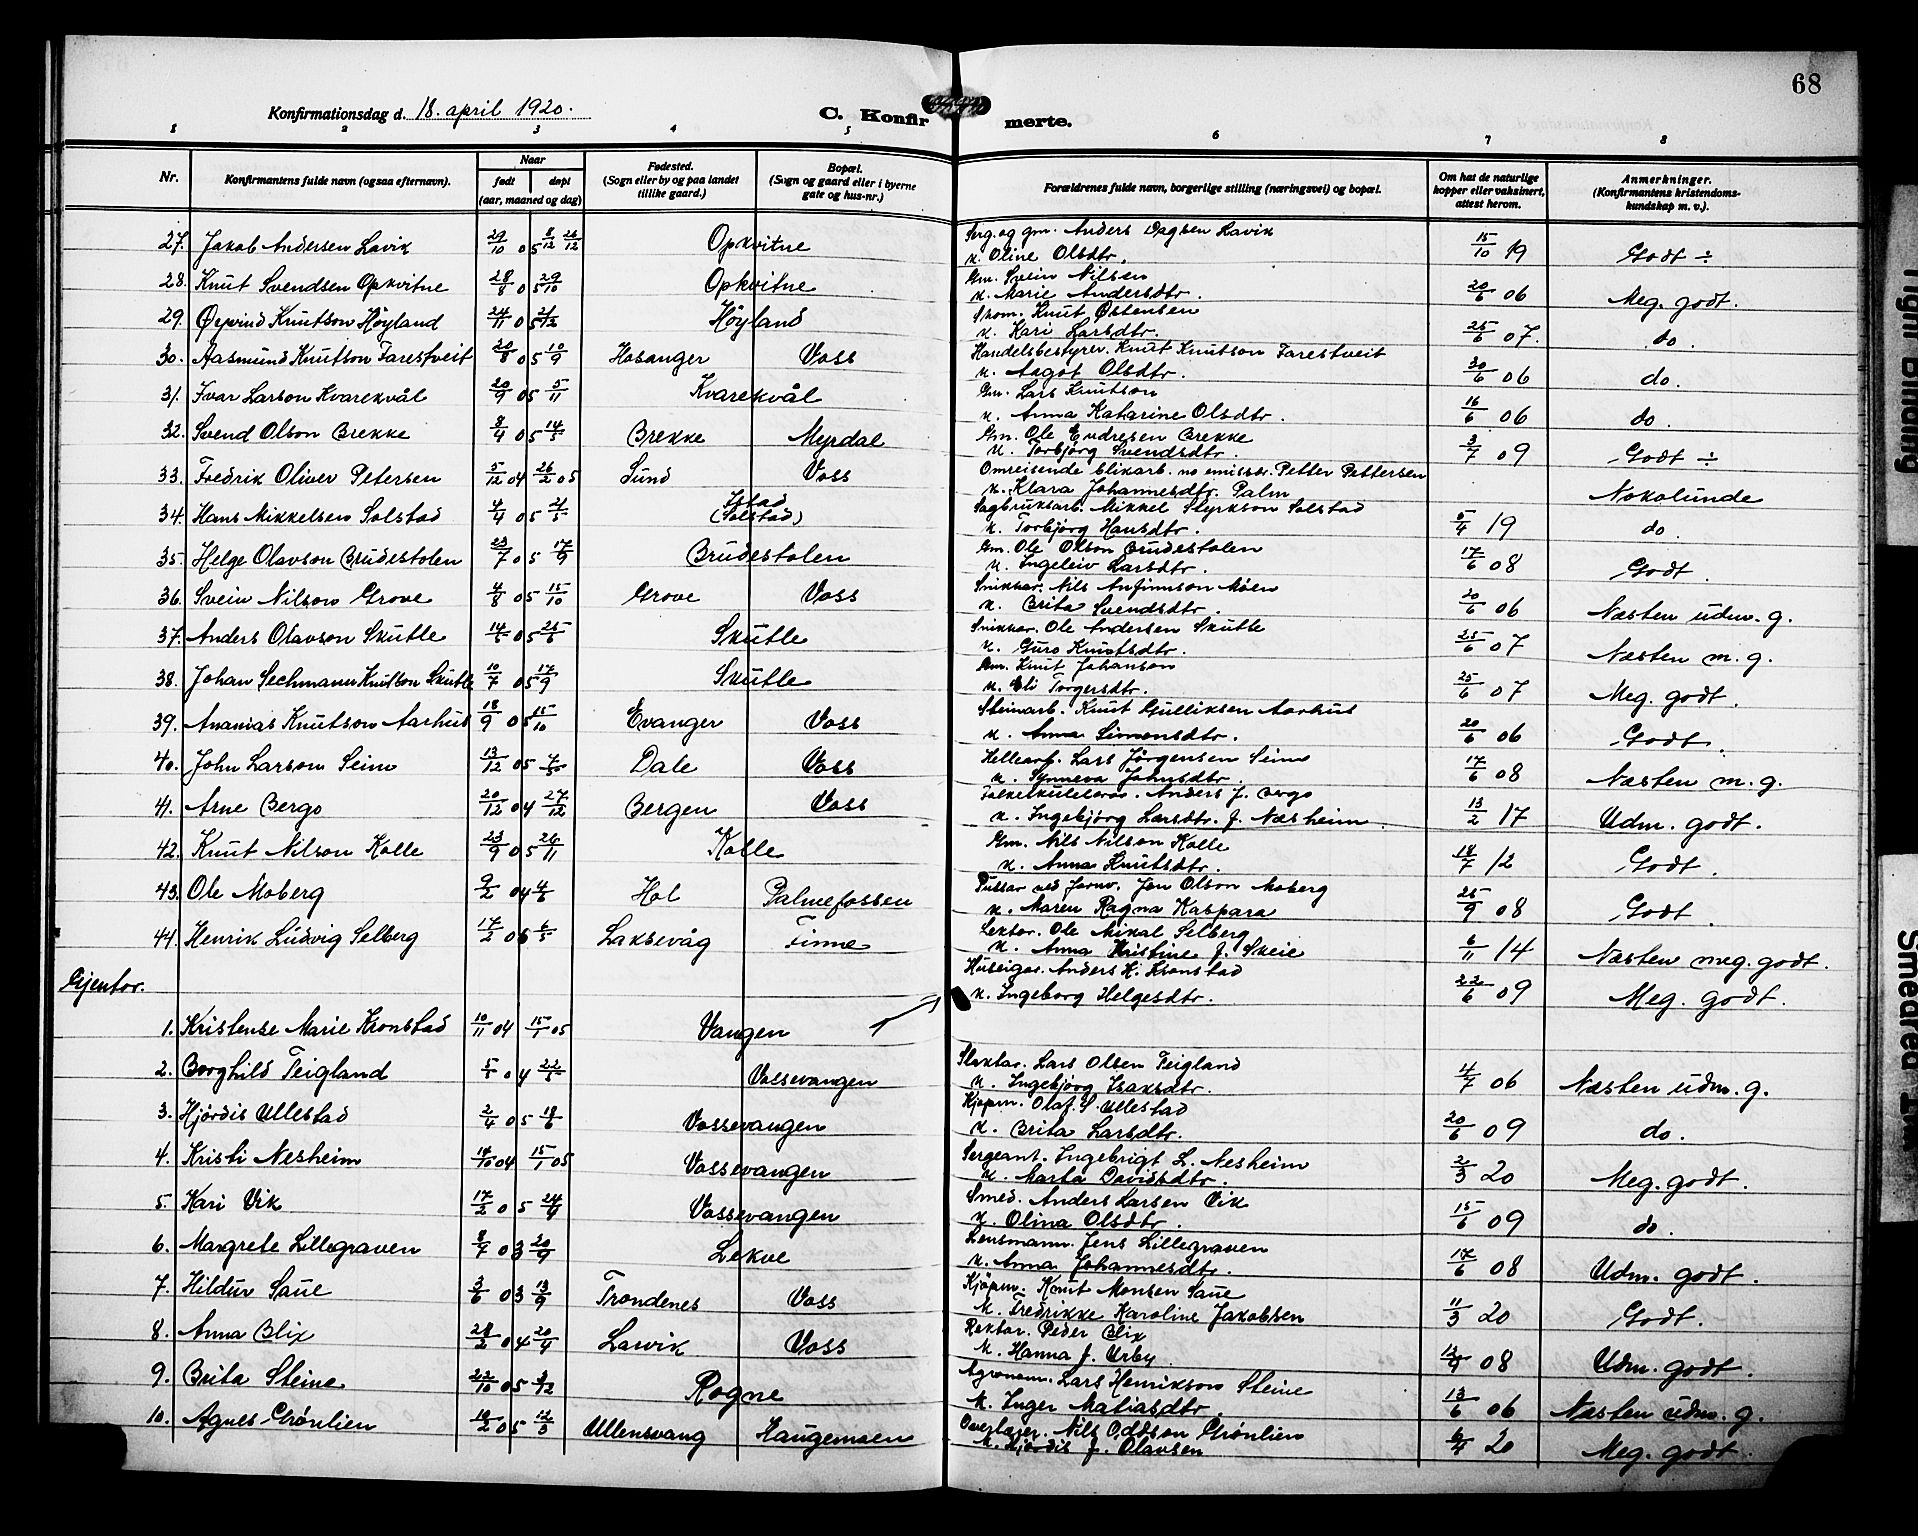 68
Konfirmationsdag d. 18. april 1920.
C. Konfirmerte.
1 2 3 4 5 6 7 8
Nr.
Konfirmantens fulde navn (ogsaa efternavn).
Naar
født døpt
(aar, maaned og dag)
Fødested.
(Sogn eller by og paa landet
tillike gaard.)
Bopæl.
(Sogn og gaard eller i byerne
gate og hus-nr.)
Forældrenes fulde navn, borgerlige stilling (næringsvei) og bopæl.
Om hat de naturlige
kopper eller vaksinert,
attest herom.
Anmerkninger.
(Konfirmantens kristendoms-
kundskap m. v.).
27. Jakob Andersen Lavik 29/10 05 8/12 26/12 Opkvitne Serg. og gm. Anders Dagsen Lavik
u. Oline Olsdtr. 15/10 19 Godt ÷
28. Knut Svendsen Opkvitne 28/8 05 29/10 Opkvitne Gm. Svein Nilsen
u. Marie Andersdtr. 20/6 06 Meg. godt.
29. Øyvind Knutson Høyland 24/11 05 2/12 Høyland Skom. Knut Østensen
u. Kari Larsdtr. 25/6 07. do.
30. Aasmund Knutson Farestveit 20/8 05 10/9 Hosanger Voss Handelsbestyrer. Knut Knutson Farestveit
u. Aagot Olsdtr. 30/6 06 do.
31. Ivar Larson Kvarekvål 20/9 05 5/11 Kvarekvål Gm. Lars Knutson
u. Anna Katarine Olsdtr. 16/6 06 do.
32. Svend Olson Brekke 8/4 05 14/5 Brekke Myrdal Gm. Ole Endresen Brekke
u. Torbjørg Svendsdtr. 3/7 09 Godt ÷
33. Fredrik Oliver Petersen 5/12 04 26/2 05 Sund Voss Omreisende blikarb. no emissær. Petter Pettersen
u. Klara Johannesdtr. Palm Nokolunde
34. Hans Mikkelsen Solstad 4/4 05 21/5 (Solstad) Sagbruksarb. Mikkel Styrkson Solstad
u. Torbjørg Hansdtr. 5/4 19 do.
35. Helge Olavson Brudestolen 23/7 05 17/9 Brudestolen Gm. Ole Olson Brudestolen
u. Ingeleiv Larsdtr. 17/6 08 Godt
36. Svein Nilson Grove 4/8 05 15/10 Grove Voss Snikkar. Nils Anfinnson Moen
u. Brita Svendsdtr. 20/6 06 Næsten udm. g.
37. Anders Olavson Skutle 14/5 05 25/6 Skutle Snikkar. Ole Andersen Skutle
u. Guro Knutsdtr. 25/6 07 Næsten m. g.
38. Johan Sechmann Knutson Skutle 10/7 05 17/9 Skutle Gm. Knut Johanson
u. Eli Torgersdtr. 25/6 07 Meg. godt.
39. Ananias Knutson Aarhus 18/9 05 15/10 Evanger Voss Steinarb. Knut Gulliksen Aarhus
u. Anna Simonsdtr. 20/6 06 Godt.
40. John Larson Seim 13/12 05 7/5 Dale Voss Hellearb. Lars Jørgensen Seim
u. Synneva Johnsdtr. 17/6 08 Næsten m. g.
41. Arne Bergo 20/12 04 27/12 Bergen Voss Folkeskulelærar. Anders J. Bergo
u. Ingebjørg Larsdtr. f. Næsheim. 13/2 17 Udm. godt.
42. Knut Nilson Kolle 23/9 05 26/11 Kolle Gm. Nils Nilson Kolle
u. Anna Knutsdtr. 18/7 12 Godt.
43. Ole Moberg 9/2 04 4/6 Hol Palmefossen Pussar ved Jernv. Jon Olson Moberg
u. Maren Ragna Kaspara 25/9 08 Godt.
44. Henrik Ludvig Selberg 17/2 06 6/5 Laksevåg Finne Lektor. Ole Mikal Selberg
u. Anna Kristine f. Skeie 6/11 14 Næsten meg. godt.
Gjentor.
1. Kristense Marie Kronstad 10/11 04 15/1 05 Vangen Huseigar. Anders H. Kronstad
u. Ingeborg Helgesdtr. 22/6 09 Meg. godt.
2. Borghild Teigland 5/5 04 22/5 Vossevangen Slaktar. Lars Olsen Teigland
u. Ingebjørg Isaksdtr. 4/7 06 Næsten udm. g.
3. Hjørdis Ullestad 2/4 05 18/6 Vossevangen Kjøpm. Olaf S. Ullestad
u. Brita Larsdtr. 20/6 09 do.
4. Kristi Nesheim 14/10 04 15/1 05 Vossevangen Sergeant. Ingebrigt L. Nesheim
u. Marta Davidsdtr. 2/3 20 Meg. godt.
5. Kari Vik 17/2 05 24/4 Vossevangen Smed. Anders Larsen Vik
u. Olina Olsdtr. 15/6 09 do.
6. Margrete Lillegraven 8/7 03 20/9 Lekve Lensmann. Jens Lillegraven
u. Anna Johannesdtr. 17/6 08 Udm. godt.
7. Hildur Saue 3/6 03 13/9 Trondenes Voss Kjøpm. Knut Monsen Saue
u. Fredrikke Karoline Jakobsen 11/3 20 Godt.
8. Anna Blix 28/2 04 20/4 Larvik Voss Rektor. Peder Blix
u. Hanna f. Urby. 12/9 08 Udm. godt.
9. Brita Steine 22/10 05 3/12 Rogne Agronom. Lars Henrikson Steine
u. Inger Matiasdtr. 13/6 06 Næsten udm. g.
10. Agnes Grønlien 18/2 05 12/3 Ullensvang Haugemoen Overlærer. Nils Oddson Grønlien
u. Hjørdis f. Olavsen 6/4 20 Meg. godt
Tight Binding
Smeared Ink